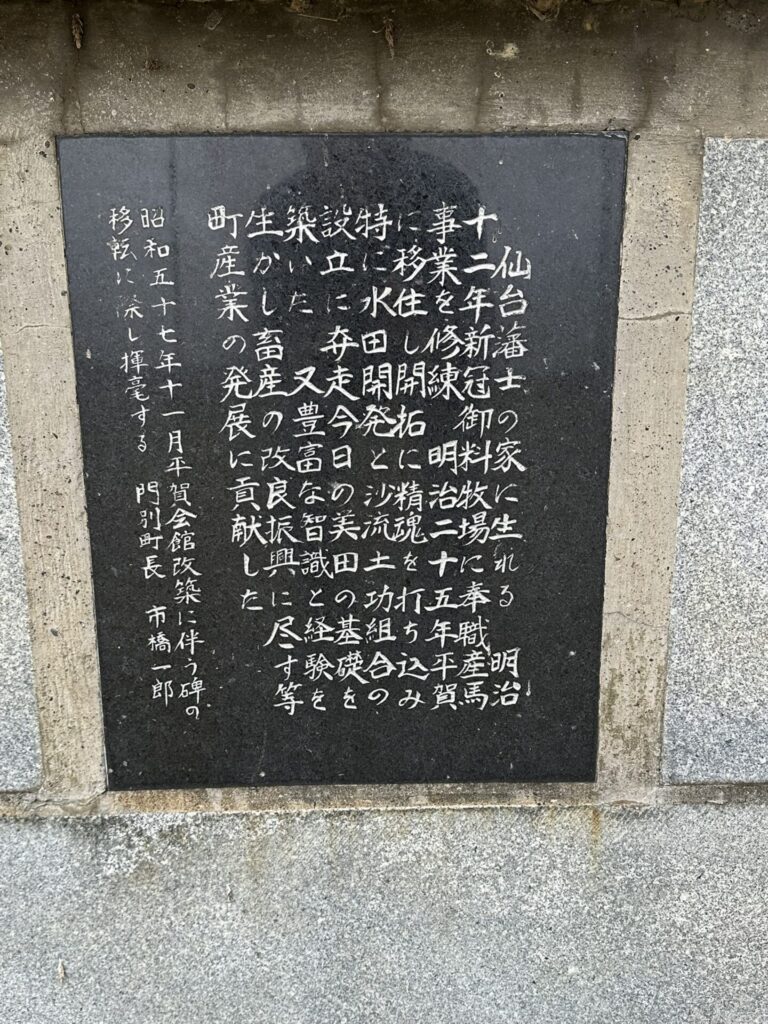 仙台藩士の家に生れる　明治
十二年新冠御料牧場に奉職産馬
事業を修練　明治二十五年平賀
に移住し開拓に精魂を打ち込み
特に水田開発と沙流土功組合の
設立に奔走今日の美田の基礎を
築いた　又豊富な智識と経験を
生かし畜産の改良振興に尽す等
町産業の発展に貢献した
昭和五十七年十一月平賀会館改築に伴う碑の
移転に際し揮毫する　門別町長　市橋一郎